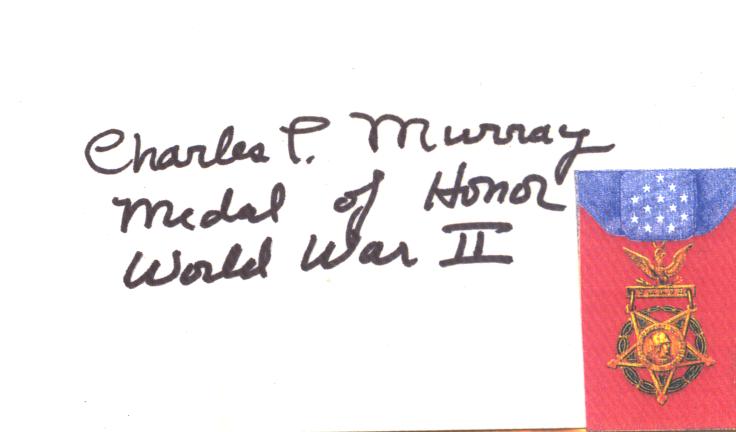 Charles P. Murray
Medal of Honor
World War II